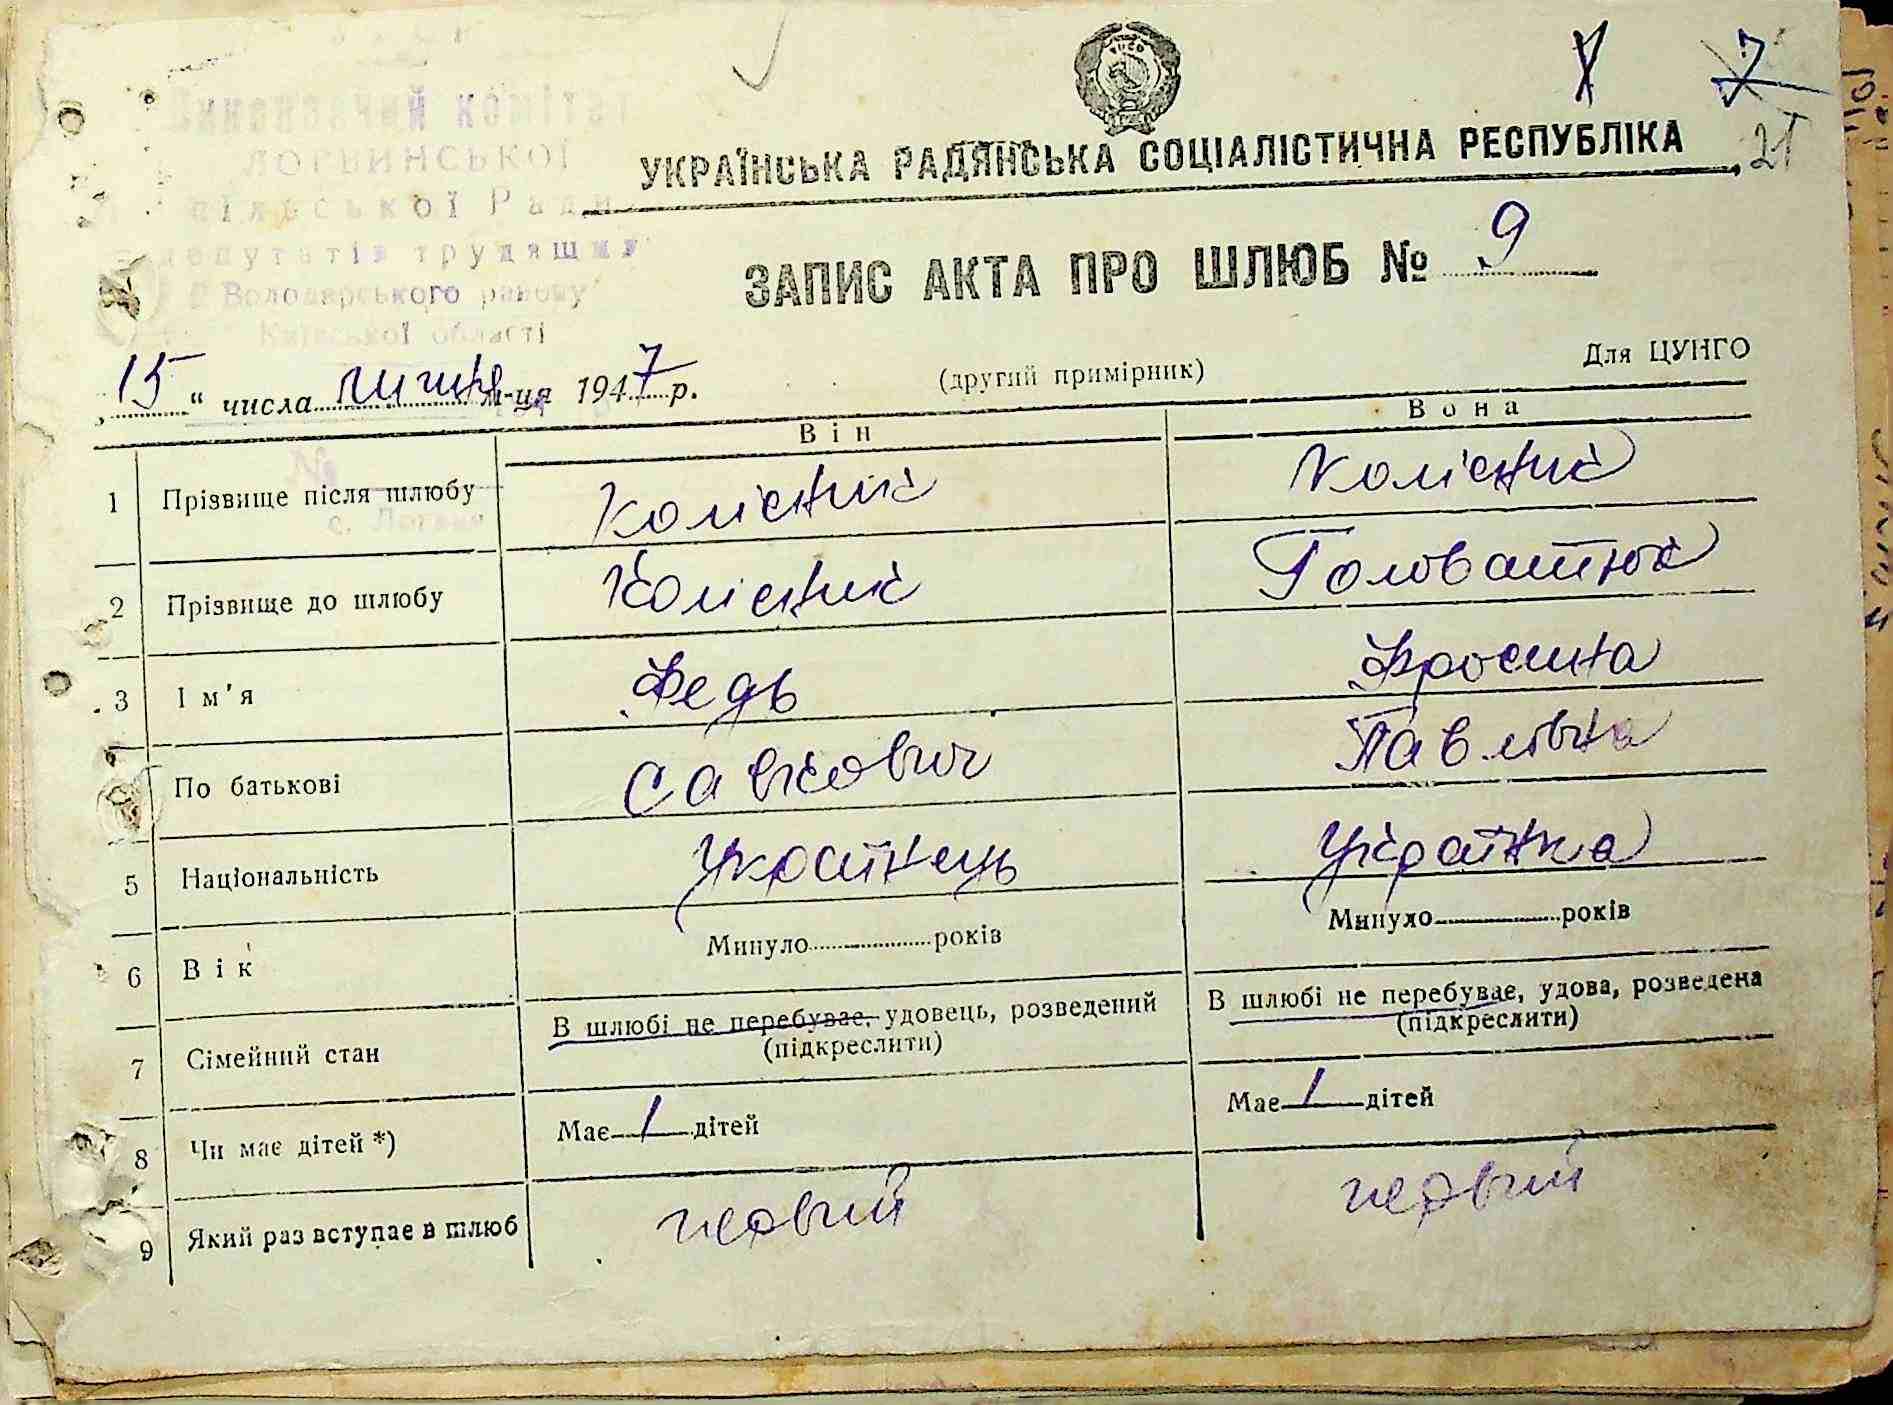 Виконавчий комітет
ЛОГВИНСЬКОЇ
сільської Ради
депутатів трудящих
Володарського району
Київської області
№
с. Логвин
7
21
УКРАЇНСЬКА РАДЯНСЬКА СОЦІАЛІСТИЧНА РЕСПУБЛІКА
ЗАПИС АКТА ПРО ШЛЮБ № 9
„15“ числа липня м-ця 1947 р.
(другий примірник)
Для ЦУНГО
Він Вона
1 Прізвище після шлюбу Колісник Колісник
2 Прізвище до шлюбу Колісник Головатюк
3 Ім'я Федь Фросина
По батькові Савкович Павлівна
5 Національність Українець Українка
6 Вік Минуло років Минуло років
7 Сімейний стан В шлюбі не перебуває, удовець, розведений (підкреслити) В шлюбі не перебуває, удова, розведена (підкреслити)
8 Чи має дітей *) Має / дітей Має / дітей
9 Який раз вступає в шлюб первий первий